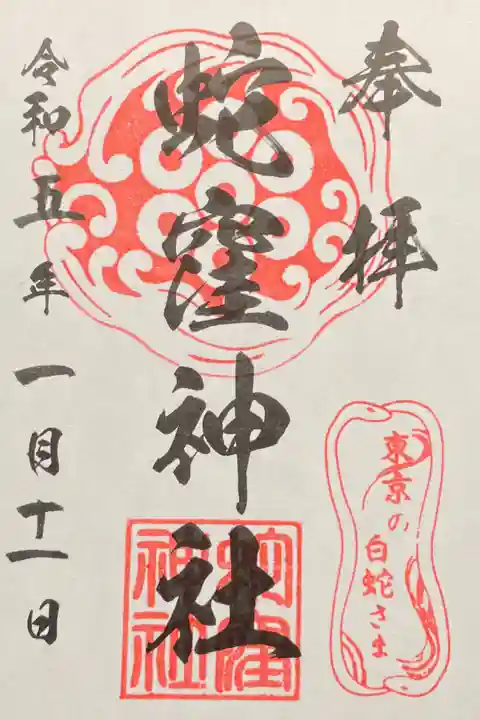 奉拝
蛇窪神社
蛇窪
神社
東京の
白蛇さま
令和五年一月十一日